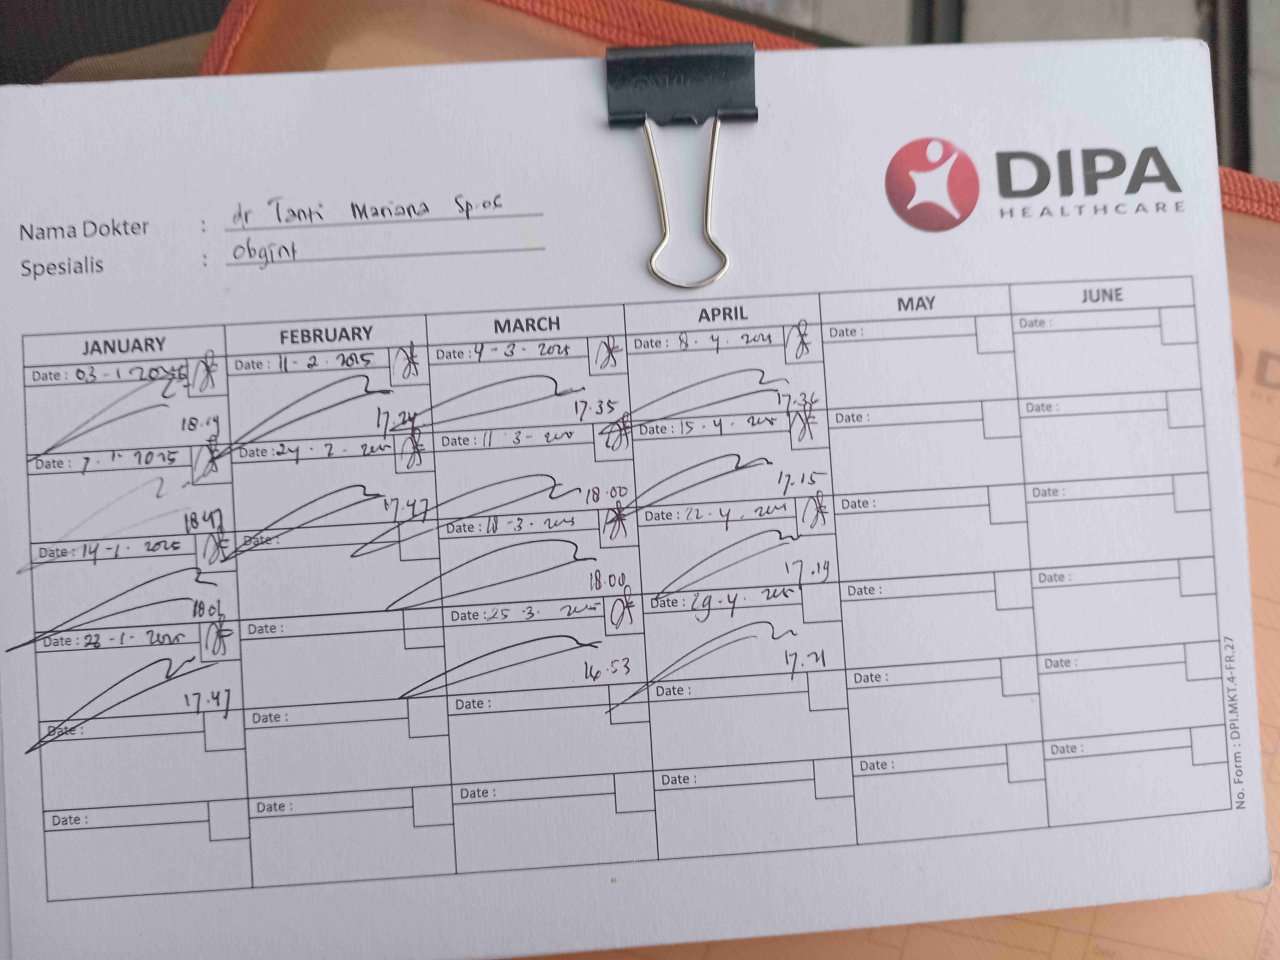 DIPA
HEALTHCARE
Nama Dokter : dr Tanti Mariana Sp.OG
Spesialis : Obgint
JANUARY FEBRUARY MARCH APRIL MAY JUNE
Date : 03-1-2025 Date : 11-2-2025 Date : 4-3-2025 Date : 8-4-2025 Date : Date :
18.19 17.24 17.35 17.36
Date : 7-1-2025 Date : 24-2-2025 Date : 11-3-2025 Date : 15-4-2025 Date : Date :
18.47 17.47 18.00 17.15
Date : 14-1-2025 Date : Date : 18-3-2025 Date : 22-4-2025 Date : Date :
18.06 18.00 17.19
Date : 22-1-2025 Date : Date : 25-3-2025 Date : 29-4-2025 Date : Date :
17.47 16.53 17.21
Date : Date : Date : Date : Date : Date :
Date : Date : Date : Date : Date : Date :
No. Form : DPI.MKT.4-FR.27